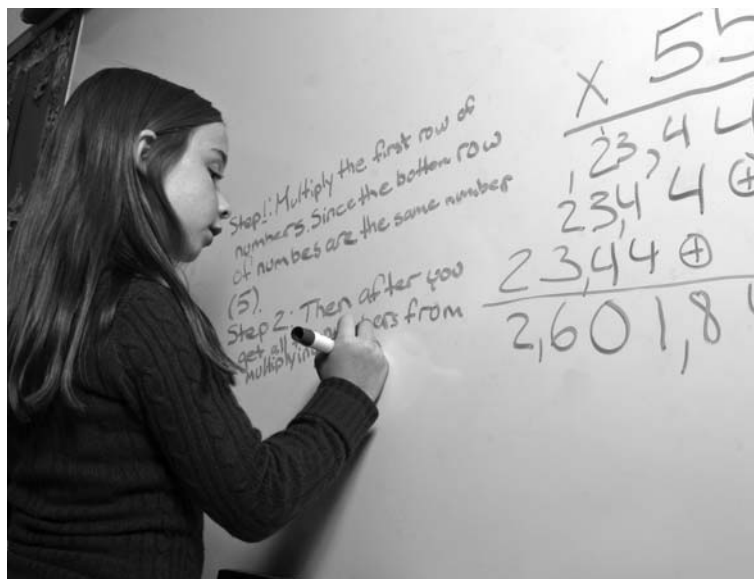 Step 1: Multiply the first row of
numbers. Since the bottom row
of numbes are the same number
(5).
Step 2: Then after you
get all from
multiplying
X 55
23,44
23,44 ⊕
23,44 ⊕
2,601,8